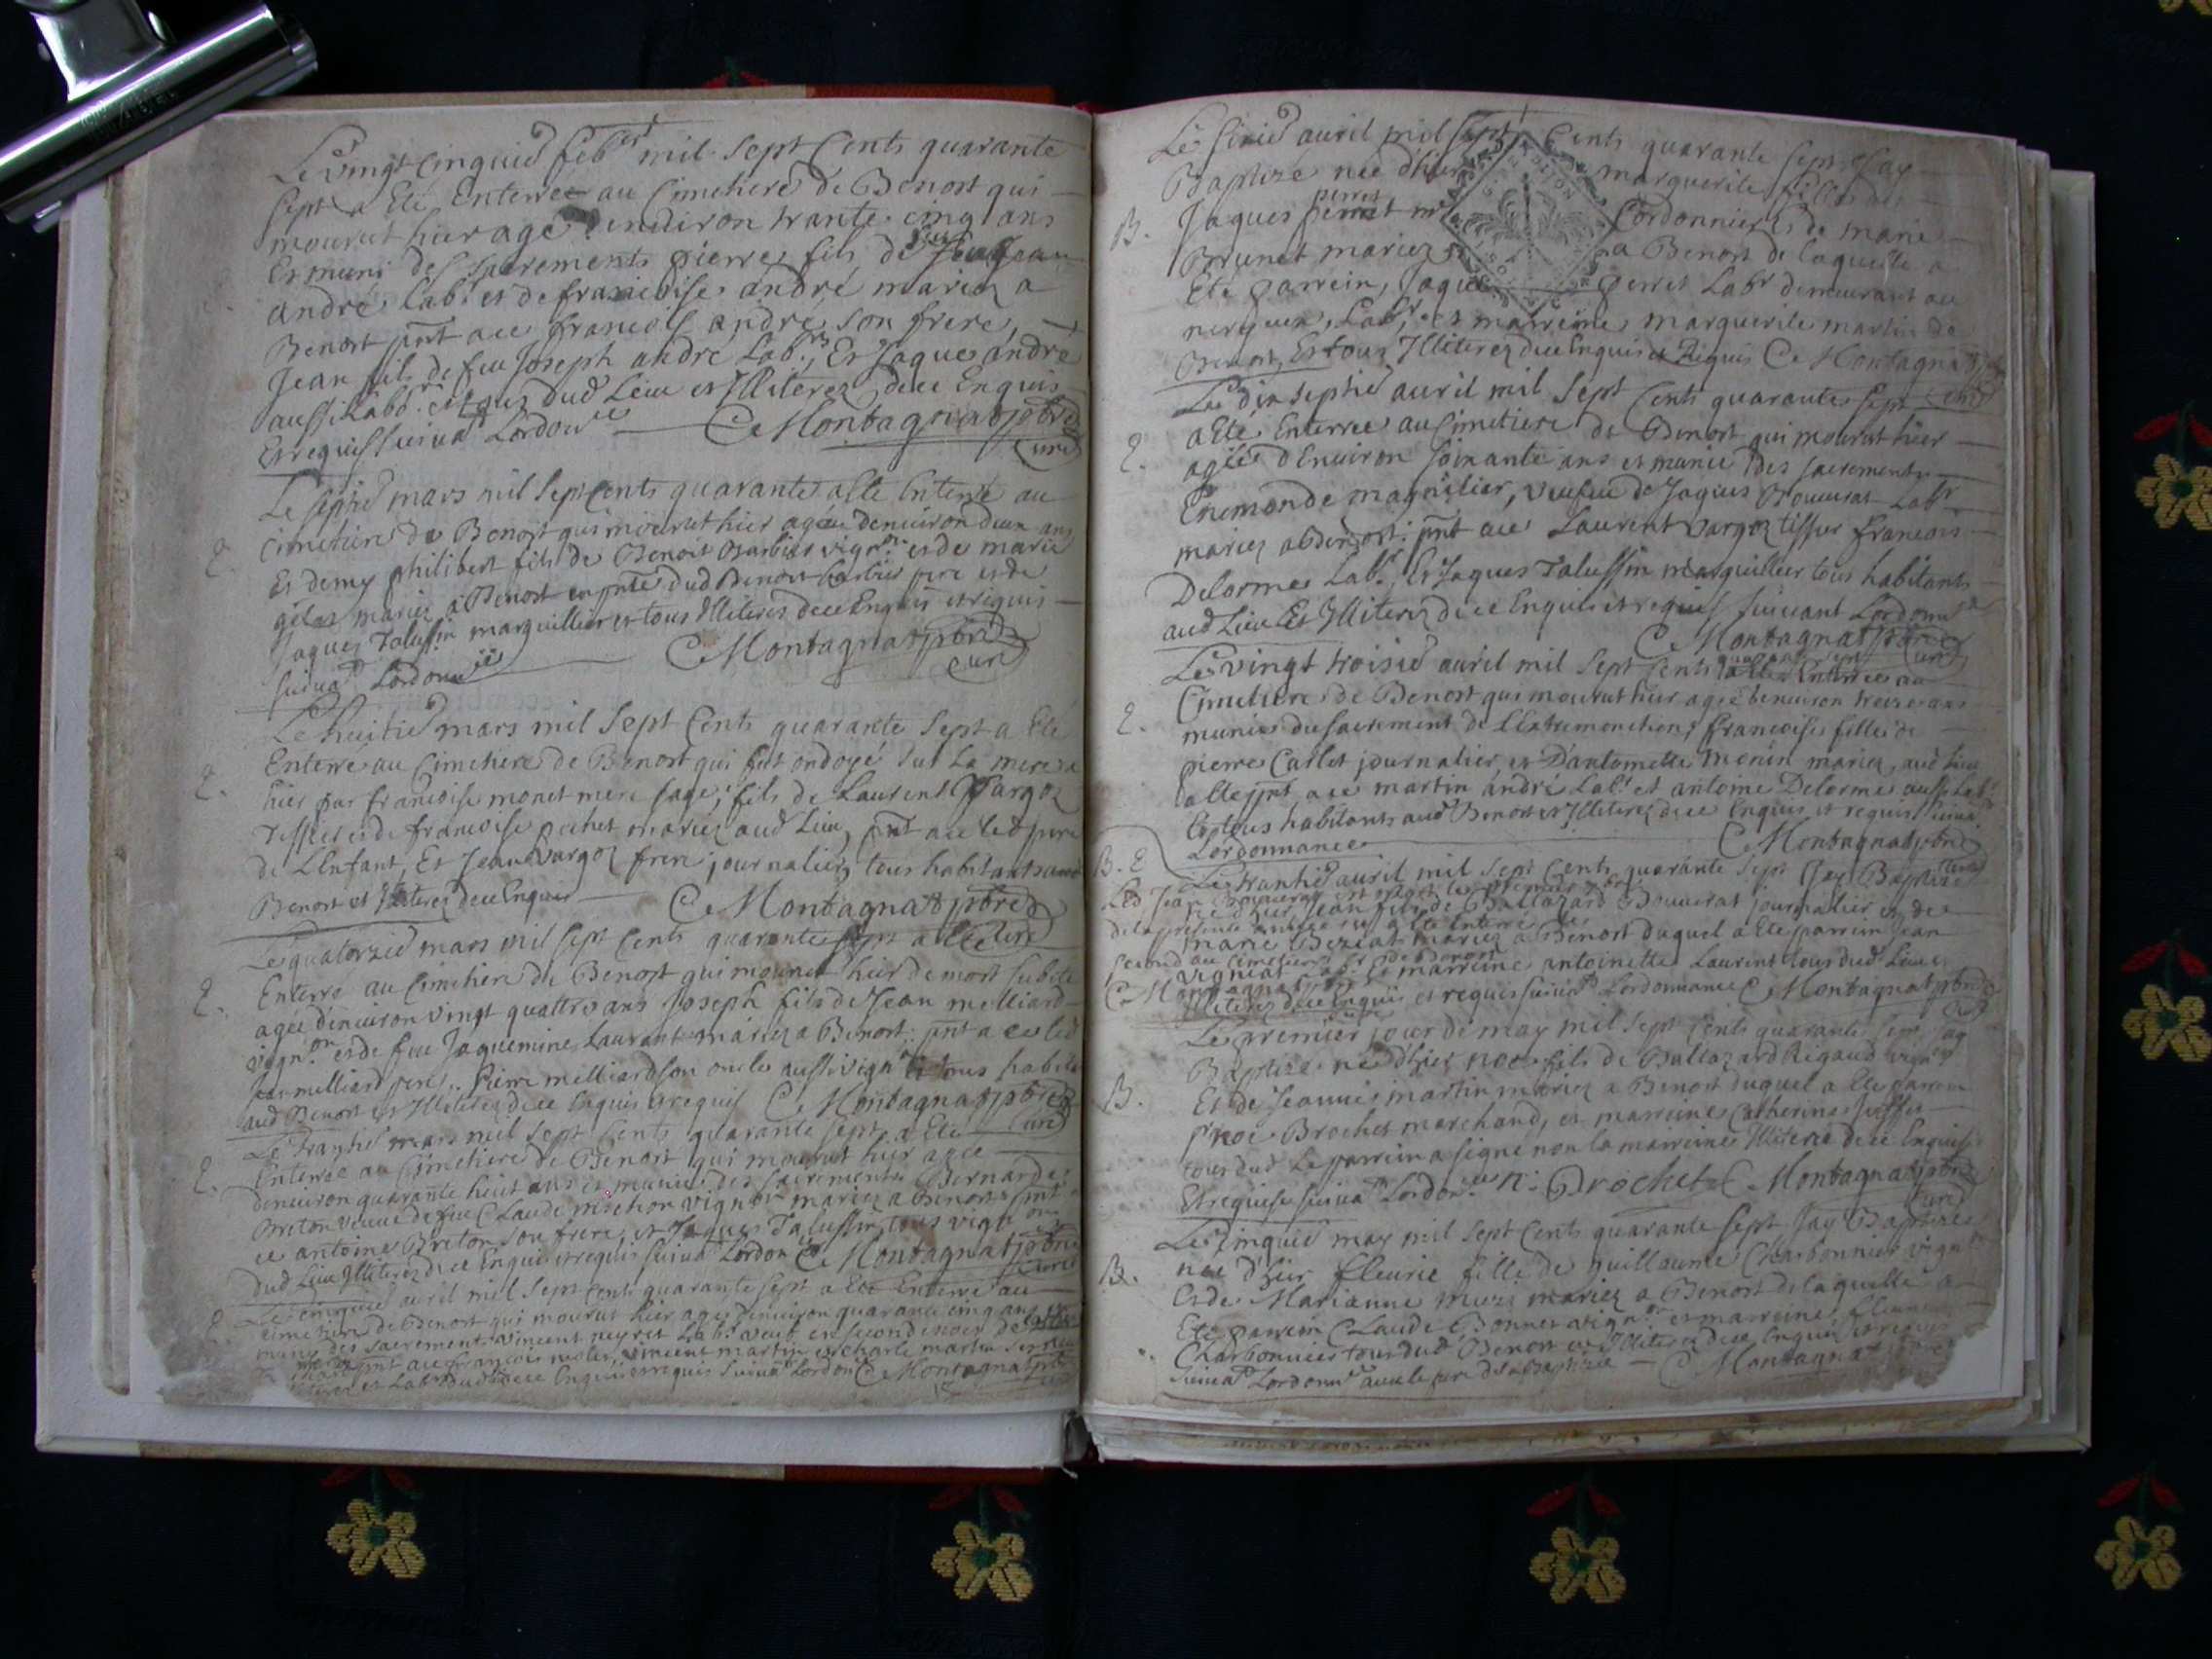 Le vingt cinquie feber mil sept Cents quarante
sept a Eté Enterré au Cimetiere de Benost qui
mourut hier agé denuiron trante cinq ans
Et muni des sacrements pierre fils de feu Jean
andré labr et de francoise andré mariez a
Benost pnt ace francois andre son frere,
Jean fils de feu Joseph andré Labr, Et Jaques andré
aussi Labor et tous dud Lieu et Illiterez dece Enquis
Et requis suiuat Lordonce C Montagnat ptre
curé
Le septie mars mil sept Cents quarante a Eté Enterré au
E. Cimetiere de Benost qui mourut hier agée denuiron deux ans
Et demy philibert fils de Benoit Barbier vignon et de marie
mariez a Benost en pnce dud Benoit Barbier pere et de
Jaques Talussin marguillier et tous Illiterez dece Enquis et requis
suiuat Lordonce C Montagnat ptre
curé
Le huitie mars mil sept Cents quarante sept a Eté
E. Enterré au Cimetiere de Benost qui fut ondoyé sur La mere
hier par francoise monet mere sage, fils de Laurent Vargoz
Tissier et de francoise pochet mariez aud Lieu, pnt ace led pere
de L'Enfant, Et Jean Vargoz frere journalier, tous habitants aud
Benost et Illiterez dece Enquis C Montagnat ptre
Le quatorzie mars mil sept Cents quarante sept a Eté curé
E. Enterré au Cimetiere de Benost qui mourut hier de mort subite
agée denuiron vingt quattre ans Joseph fils de Jean melliard
vignon et de feu Jaquemine Laurant mariez a Benost: pnt a ce led
Jean melliard pere, Pierre melliard son oncle aussi vignr et tous habita
aud Benost et Illiterez dece Enquis et requis C Montagnat ptre
Le Trantie mars mil sept Cents quarante sept a Eté curé
E. Enterrée au Cimetiere de Benost qui mourut hier agée
denuiron quarante huit ans et munie des sacrements Bernarde
Breton veuue de feu Claude michon vignon mariez a Benost pnt
ce antoine Breton son frere, et Jaques Talussin, tous vignon
dud Lieu Illiterez dece Enquis et requis suiuat Lordon C Montagnat ptre
Le cinquie auril mil sept Cents quarante sept a Eté Enterré au curé
E. cimetiere de Benost qui mourut hier agé denuiron quarante cinq ans
muny des sacrements Vincent neyret Labr veuf en secondes noces de
pnt ace francois molet, vincent martin et charle martin
et Labr dud Lieu dece Enquis et requis suiuat Lordon C Montagnat ptre
Le sixie auril mil sept Cents quarante sept Jay
Baptizé née d'hier marguerite fille de
B. Jaques perret Cordonnier Et de marie
Brunet mariez a Benost de laquelle a
Eté parrein, Jaques perret Labr demeurant au
Labr, et marreine marguerite martin de
Benost, Et tous Illiterez dece Enquis et Requis C Montagnat ptre
Le dix septie auril mil sept Cents quarante sept curé
E. a Eté Enterrée au Cimetiere de Benost qui mourut hier
agée d'Enuiron soixante ans et munie des sacrements
Enemonde magnilier, veufue de Jaques Bouuerat Labr
mariez a Benost: pnt ace Laurent Vargoz tissier francois
Delorme Labr, Et Jaques Talussin marguillier tous habitants
aud Lieu Et Illiterez dece Enquis et requis suiuant Lordonnce
C Montagnat ptre
Le vingt troisie auril mil sept Cents quarante sept a Eté Enterrée au curé
E. Cimetiere de Benost qui mourut hier agée denuiron treize ans
munie du sacrement de L'Extremonction, francoise fille de
pierre Carlet journalier, et D'antoinette morin mariez aud lieu
a Eté pnt ace martin andré Labr et antoine Delorme aussi Labr
Et tous habitants aud Benost et Illiterez dece Enquis et requis suiuat
Lordonnance C Montagnat ptre
B. E Le trantie auril mil sept Cents quarante sept Jay Baptizé curé
Led Jean Bouuerat est mort le premier
né d'hier, Jean fils de Baltazard Bouuerat journalier et de
de la presente année et a Eté Enterré le
marie Bezeat mariez a Benost duquel a Eté parrein Jean
second au Cimetiere de Benost
vigneat Labr Et marreine antoinette Laurent tous dud Lieu
C Montagnat ptre
Illiterez dece Enquis et requis suiuat Lordonnance C Montagnat ptre
curé
Le premier jour de may mil sept Cents quarante sept Jay
Baptizé né d'hier noe fils de Baltazard Rigaud vignon
B. Et de Jeanne martin mariez a Benost duquel a Eté parrein
noé Brochet marchand, et marreine Catherine
tous dud Le parrein a signé non la marreine Illiterée dece Enquise
Et requise suiuat Lordonce n: Brochet C Montagnat ptre
curé
Le Cinquie may mil sept Cents quarante sept Jay Baptizée
B. née d'hier fleurie fille de guillaume Charbonnier vignon
Et de Marianne muzi mariez a Benost de laquelle a
Eté parrein Claude Bonnet vignon et marreine fleurie
Charbonnier tous dud Benost et Illiterez dece Enquis et requis
suiuat Lordonnce auec le pere de la Baptizée C Montagnat ptre